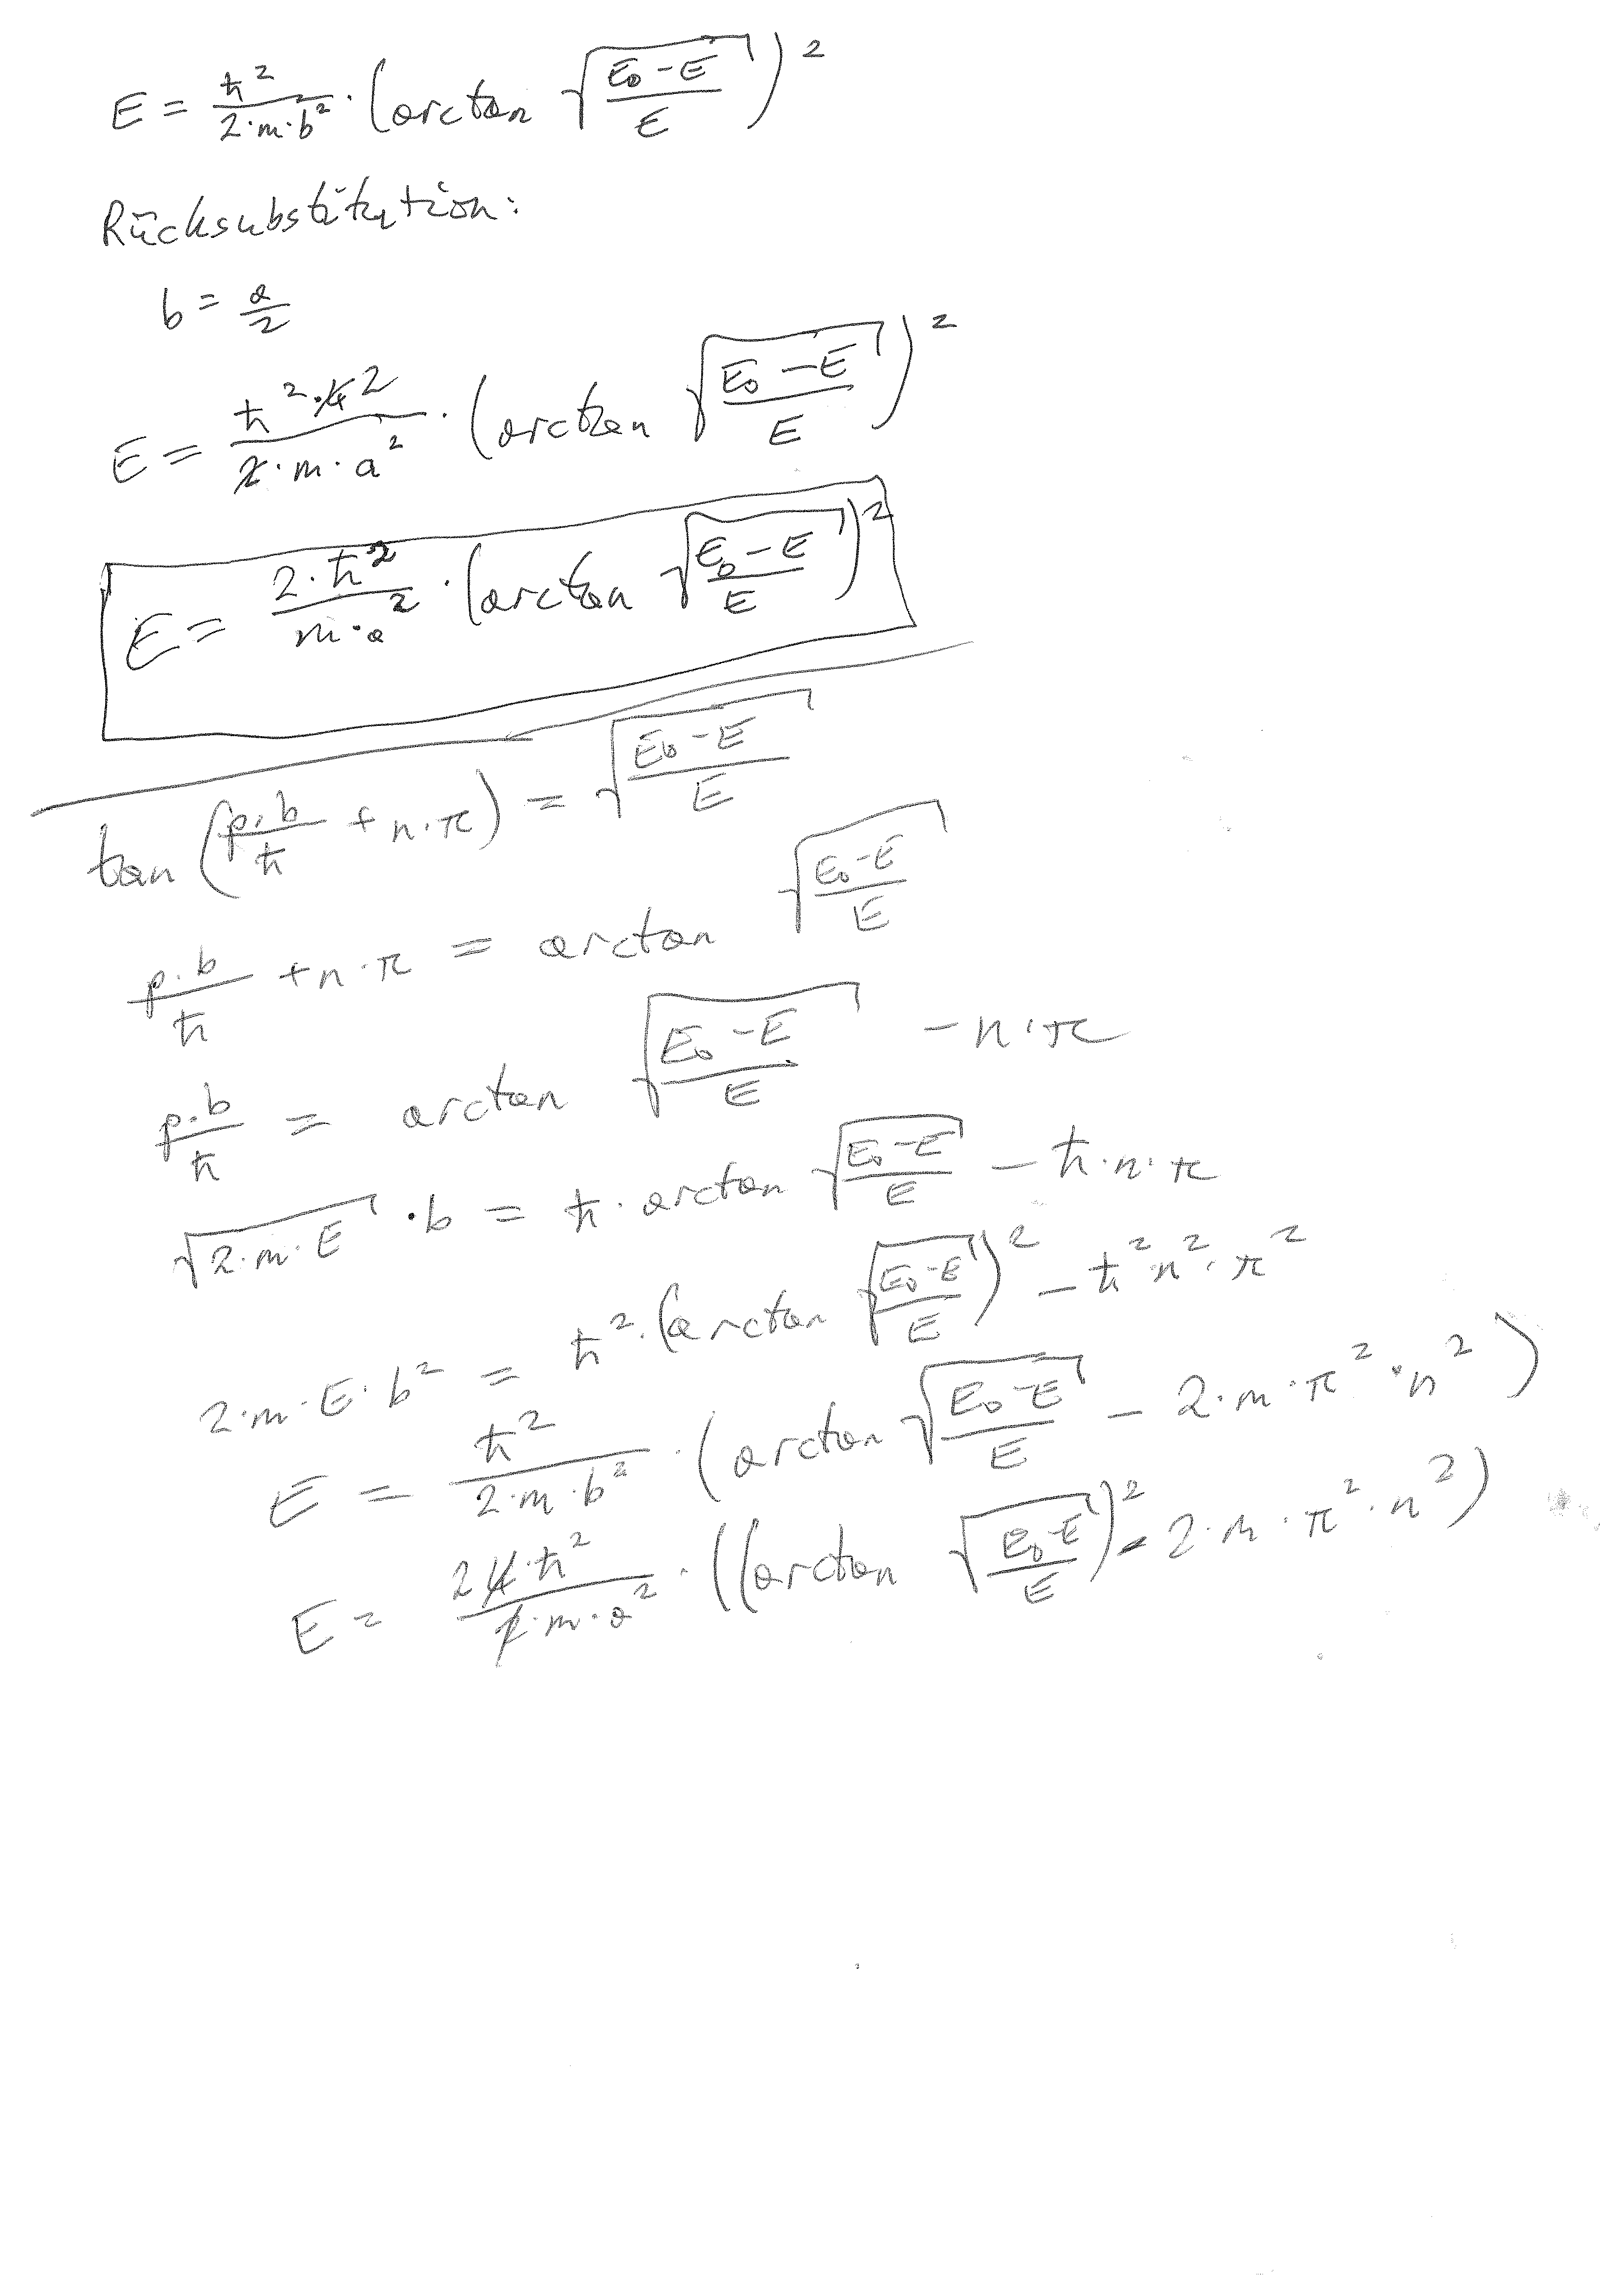 E = ħ²/(2·m·b²) · (arctan √((E₀-E)/E))²
Rücksubstitution:
b = a/2
E = (ħ²·4 2)/(2·m·a²) · (arctan √((E₀-E)/E))²
E = (2·ħ²)/(m·a²) · (arctan √((E₀-E)/E))²
tan (p·b/ħ + n·π) = √((E₀-E)/E)
p·b/ħ + n·π = arctan √((E₀-E)/E)
p·b/ħ = arctan √((E₀-E)/E) - n·π
√(2·m·E) · b = ħ · arctan √((E₀-E)/E) - ħ·n·π
2·m·E·b² = ħ² · (arctan √((E₀-E)/E))² - ħ²·n²·π²
E = ħ²/(2·m·b²) · (arctan √((E₀-E)/E) - 2·m·π²·n²)
E = (2 4·ħ²)/(2·m·a²) · ((arctan √((E₀-E)/E))² - 2·m·π²·n²)